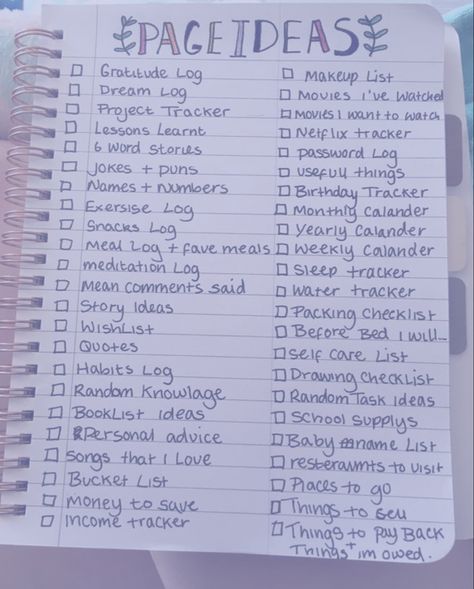 PAGE IDEAS
Gratitude Log
Dream Log
Project Tracker
Lessons Learnt
6 word stories
Jokes + puns
Names + numbers
Exersise Log
Snacks Log
Meal Log + fave meals
meditation Log
Mean comments said
Story Ideas
WishList
Quotes
Habits Log
Random Knowlage
BookList ideas
Personal advice
Songs that I Love
Bucket List
Money to save
income tracker
Makeup List
Movies I've watched
Movies I want to watch
Netflix tracker
password Log
usefull things
Birthday Tracker
Monthly calander
Yearly Calander
Weekly Calander
Sleep tracker
water tracker
Packing Checklist
Before Bed I will...
Self care List
Drawing checkList
Random Task ideas
School supplys
Baby name List
resterawnts to visit
Places to go
Things to sell
Things to Pay Back
Things + im owed.